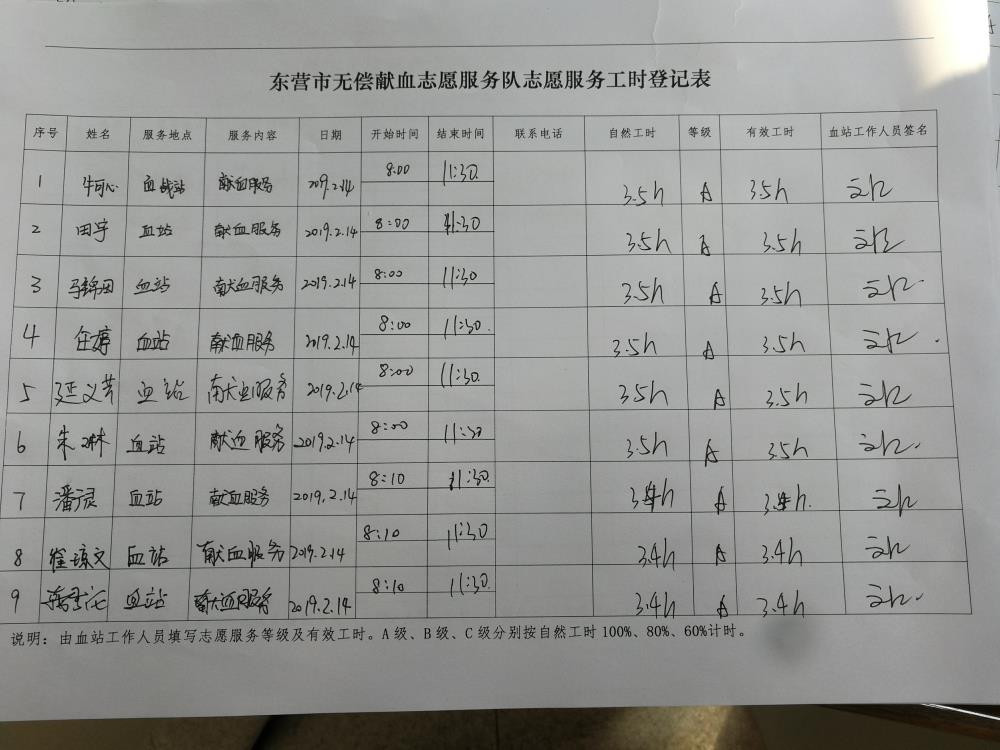 东营市无偿献血志愿服务队志愿服务工时登记表
序号 姓名 服务地点 服务内容 日期 开始时间 结束时间 联系电话 自然工时 等级 有效工时 血站工作人员签名
1 牛可心 血站 献血服务 2019.2.14 8:00 11:30 3.5h A 3.5h
2 田宇 血站 献血服务 2019.2.14 8:00 11:30 3.5h A 3.5h
3 马锦田 血站 献血服务 2019.2.14 8:00 11:30 3.5h A 3.5h
4 任婷 血站 献血服务 2019.2.14 8:00 11:30. 3.5h A 3.5h
5 延义芳 血站 献血服务 2019.2.14 8:00 11:30. 3.5h A 3.5h
6 朱琳 血站 献血服务 2019.2.14 8:00 11:30 3.5h A 3.5h
7 潘灵 血站 献血服务 2019.2.14 8:10 11:30 3.4h A 3.4h.
8 崔琼文 血站 献血服务 2019.2.14 8:10 11:30 3.4h A 3.4h
9 血站 献血服务 2019.2.14 8:10 11:30. 3.4h A 3.4h
说明：由血站工作人员填写志愿服务等级及有效工时。A级、B级、C级分别按自然工时100%、80%、60%计时。